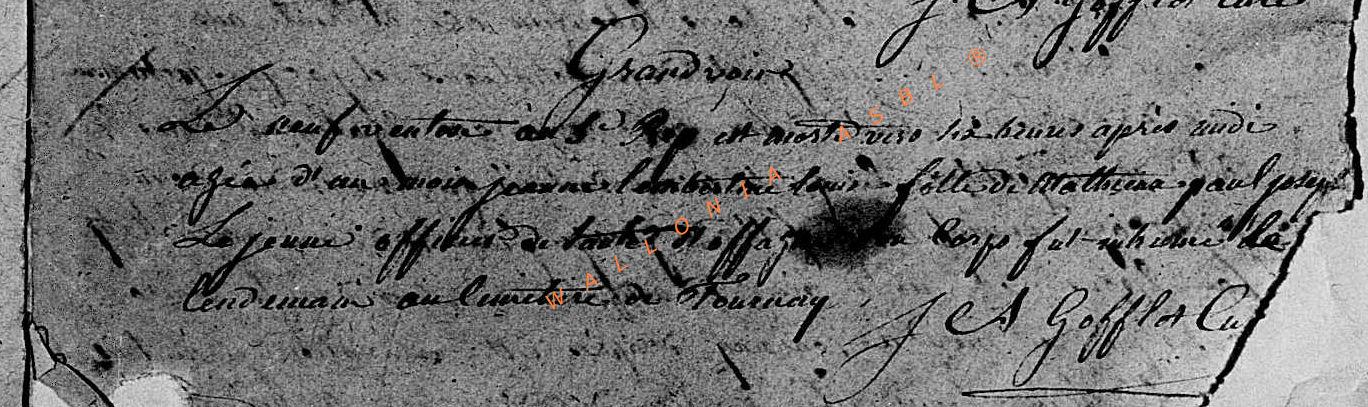 J A Gofflot Curé
Grandvoir
Le neuf ventose an 5e Rep est morte vers six heures après midi
agée d'un mois jeanne lambertine fille de Mathieu paul joseph
Lejeune officier de d'offagne corps fut inhumé le
lendemain au cimetiere de Tournay
J A Gofflot Cu
WALLONIA ASBL ®